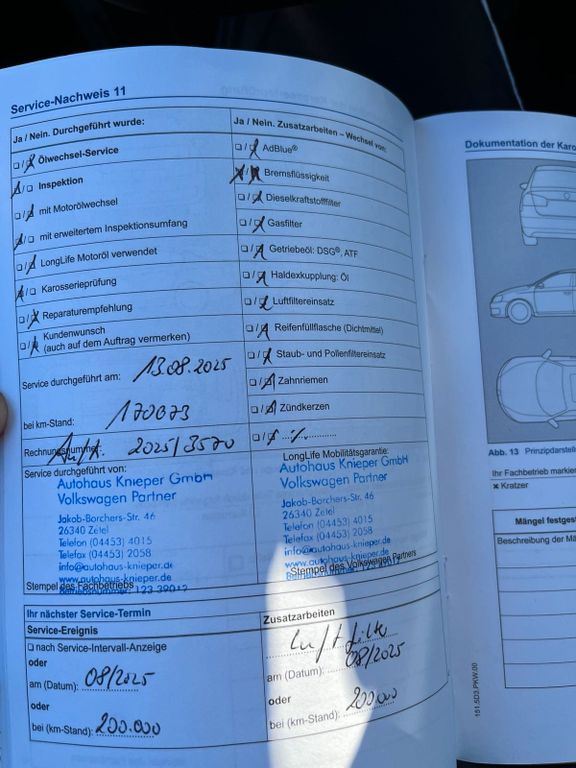 Service-Nachweis 11
Ja / Nein. Durchgeführt wurde:
☐/☒ Ölwechsel-Service
☒/☐ Inspektion
☐/☒ mit Motorölwechsel
☒/☐ mit erweitertem Inspektionsumfang
☐/☒ LongLife Motoröl verwendet
☒/☐ Karosserieprüfung
☐/☒ Reparaturempfehlung
☐/☒ Kundenwunsch
(auch auf dem Auftrag vermerken)
Service durchgeführt am: 13.08.2025
bei km-Stand: 170073
Rechnungsnummer: Auft. 2025/3570
Service durchgeführt von:
Autohaus Knieper GmbH
Volkswagen Partner
Jakob-Borchers-Str. 46
26340 Zetel
Telefon (04453) 4015
Telefax (04453) 2058
info@autohaus-knieper.de
www.autohaus-knieper.de
Betriebsnummer: 123 39012
Stempel des Fachbetriebs
Ja / Nein. Zusatzarbeiten – Wechsel von:
☐/☒ AdBlue®
☒/☒ Bremsflüssigkeit
☐/☒ Dieselkraftstofffilter
☐/☒ Gasfilter
☐/☒ Getriebeöl: DSG®, ATF
☐/☒ Haldexkupplung: Öl
☐/☒ Luftfiltereinsatz
☐/☒ Reifenfüllflasche (Dichtmittel)
☐/☒ Staub- und Pollenfiltereinsatz
☐/☒ Zahnriemen
☐/☒ Zündkerzen
☐/☒ ..../. ............
LongLife Mobilitätsgarantie:
Autohaus Knieper GmbH
Volkswagen Partner
Jakob-Borchers-Str. 46
26340 Zetel
Telefon (04453) 4015
Telefax (04453) 2058
info@autohaus-knieper.de
www.autohaus-knieper.de
Betriebsnummer: 123 39012
Stempel des Volkswagen Partners
Ihr nächster Service-Termin
Service-Ereignis
☐ nach Service-Intervall-Anzeige
oder
am (Datum): 08/2025
oder
bei (km-Stand): 200.000
Zusatzarbeiten
Luftfilter
am (Datum): 08/2025
oder
bei (km-Stand): 200.000
151.5D3.PKW.00
Dokumentation der Karo
Abb. 13 Prinzipdarstell
Ihr Fachbetrieb markie
× Kratzer
Mängel festgest
Beschreibung der Mä